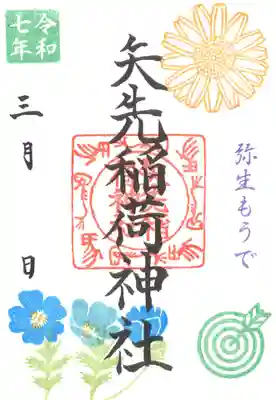 弥生もうで
矢先稲荷神社
令和
七年
三月 日